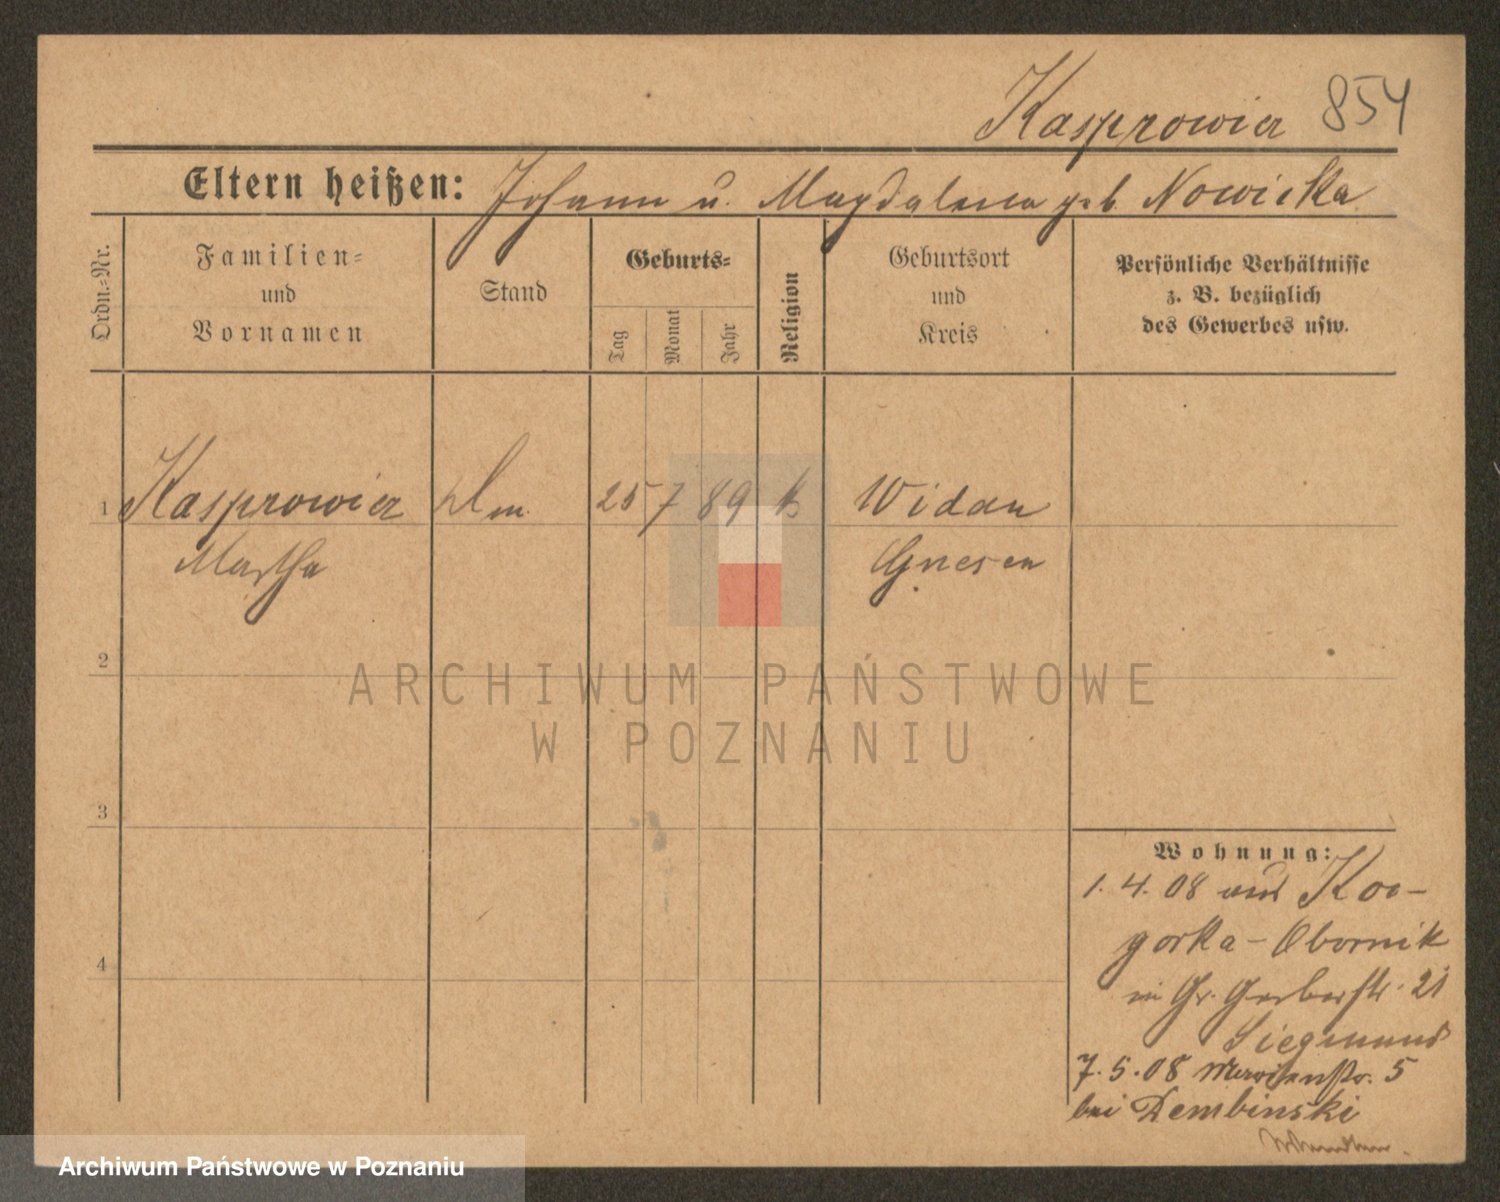 Kasprowicz 854
Eltern heißen: Johann u. Magdalena geb. Nowicka
Ordn.-Nr.
Familien-
und
Vornamen
Stand
Geburts-
Tag
Monat
Jahr
Religion
Geburtsort
und
Kreis
Persönliche Verhältnisse
z. B. bezüglich
des Gewerbes usw.
1 Kasprowicz 25 7 89 k Widau
Martha Gnesen
2
ARCHIWUM PAŃSTWOWE
W POZNANIU
3
Wohnung:
1. 4. 08 aus
gorka-Obornik
in Gr. Gerberstr. 21
Siegmund
7. 5. 08 5
bei Dembinski
4
Archiwum Państwowe w Poznaniu